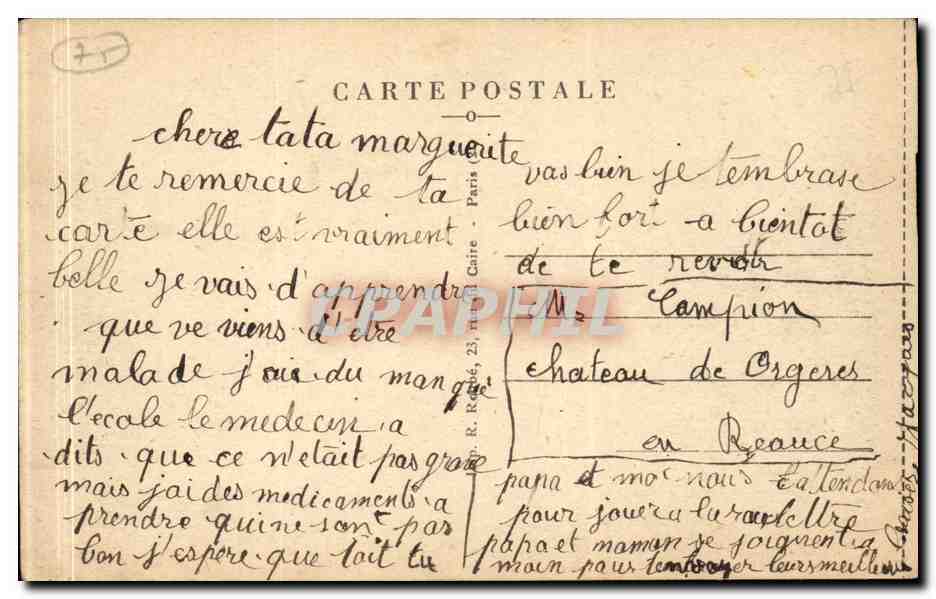 CARTE POSTALE
chere tata marguerite
je te remercie de ta
carte elle est vraiment
belle je vais d'apprendre
que ve viens d'être
malade j'ai du manqué
l'ecole le medecin a
dits que ce n'etait pas grave
mais j'ai des medicaments a
prendre qui ne sont pas
bon j'espere que toit tu
vas bien je t'embrase
bien fort a bientot
de te revoir
Campion
chateau de Orgeres
en Beauce
papa et moi nous t'attendons
pour jouer a la roulettre
papa et maman se joignent a
moin pour leurs meilleur
Paris
23, rue du Caire
CPAPHIL